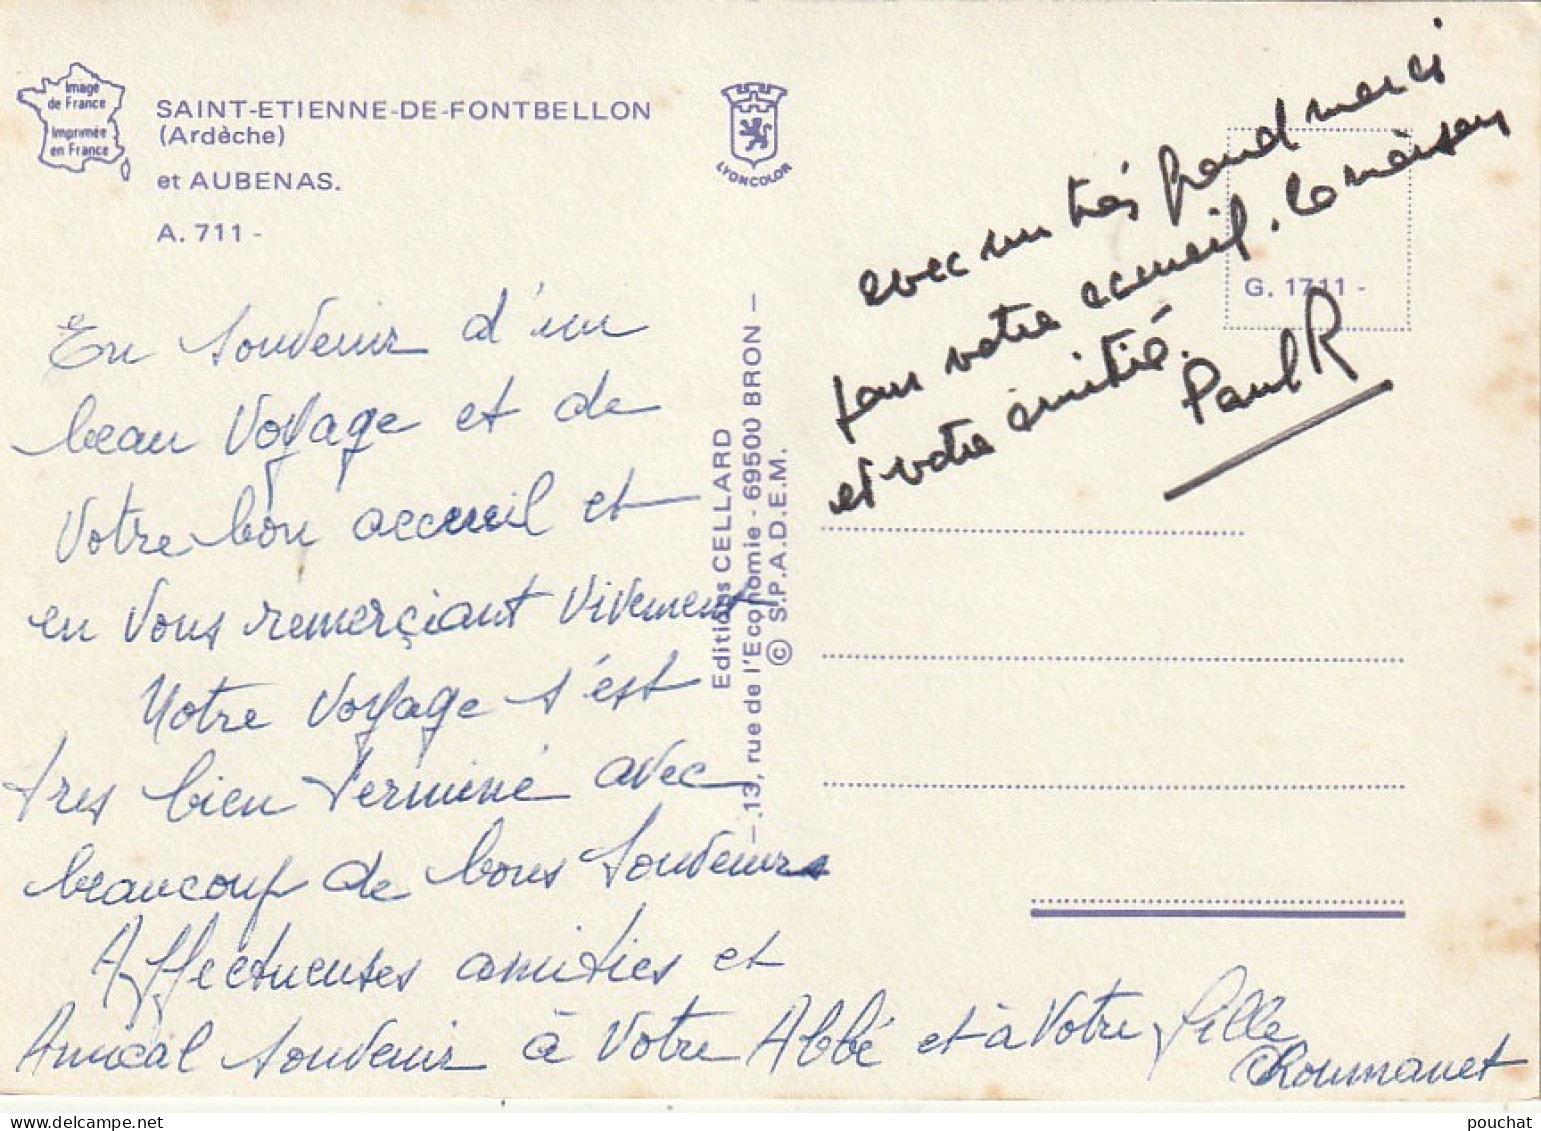 Image
de France
Imprimée
en France
SAINT-ETIENNE-DE-FONTBELLON
(Ardèche)
et AUBENAS.
A. 711 -
LYONCOLOR
G. 1711 -
En Souvenir d'un
beau Voyage et de
Votre bon accueil et
en Vous remerçiant vivement
Notre Voyage s'est
tres bien terminé avec
beaucoup de bons Souvenirs
Affectueuses amities et
Amical Souvenir à Votre Abbé et à Votre fille
Roumanet
Editions CELLARD
— 13, rue de l'Economie - 69500 BRON —
© S.P.A.D.E.M.
avec un très grand merci
pour votre accueil. la maison
et votre amitié.
Paul R
pouchat